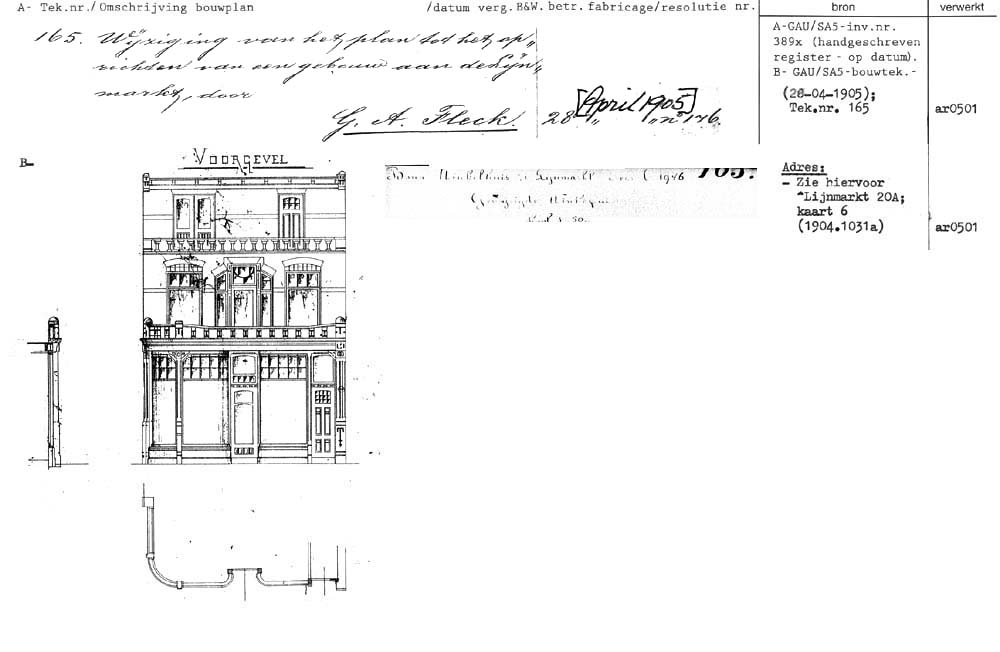 A- Tek.nr./Omschrijving bouwplan /datum verg.B&W. betr. fabricage/resolutie nr.
bron
verwerkt
165. Wijziging van het plan tot het op„
richten van een gebouw aan de Lijn„
markt, door
G. A. Fleck. 28 [April 1905] „ „ n° 146.
A-GAU/SA5-inv.nr.
389x (handgeschreven
register - op datum).
B- GAU/SA5-bouwtek.-
(28-04-1905);
Tek.nr. 165
ar0501
B-
VOORGEVEL
165.
Winkelhuis Lijnmarkt
Adres:
- Zie hiervoor
"Lijnmarkt 20A;
kaart 6
(1904.1031a)
ar0501